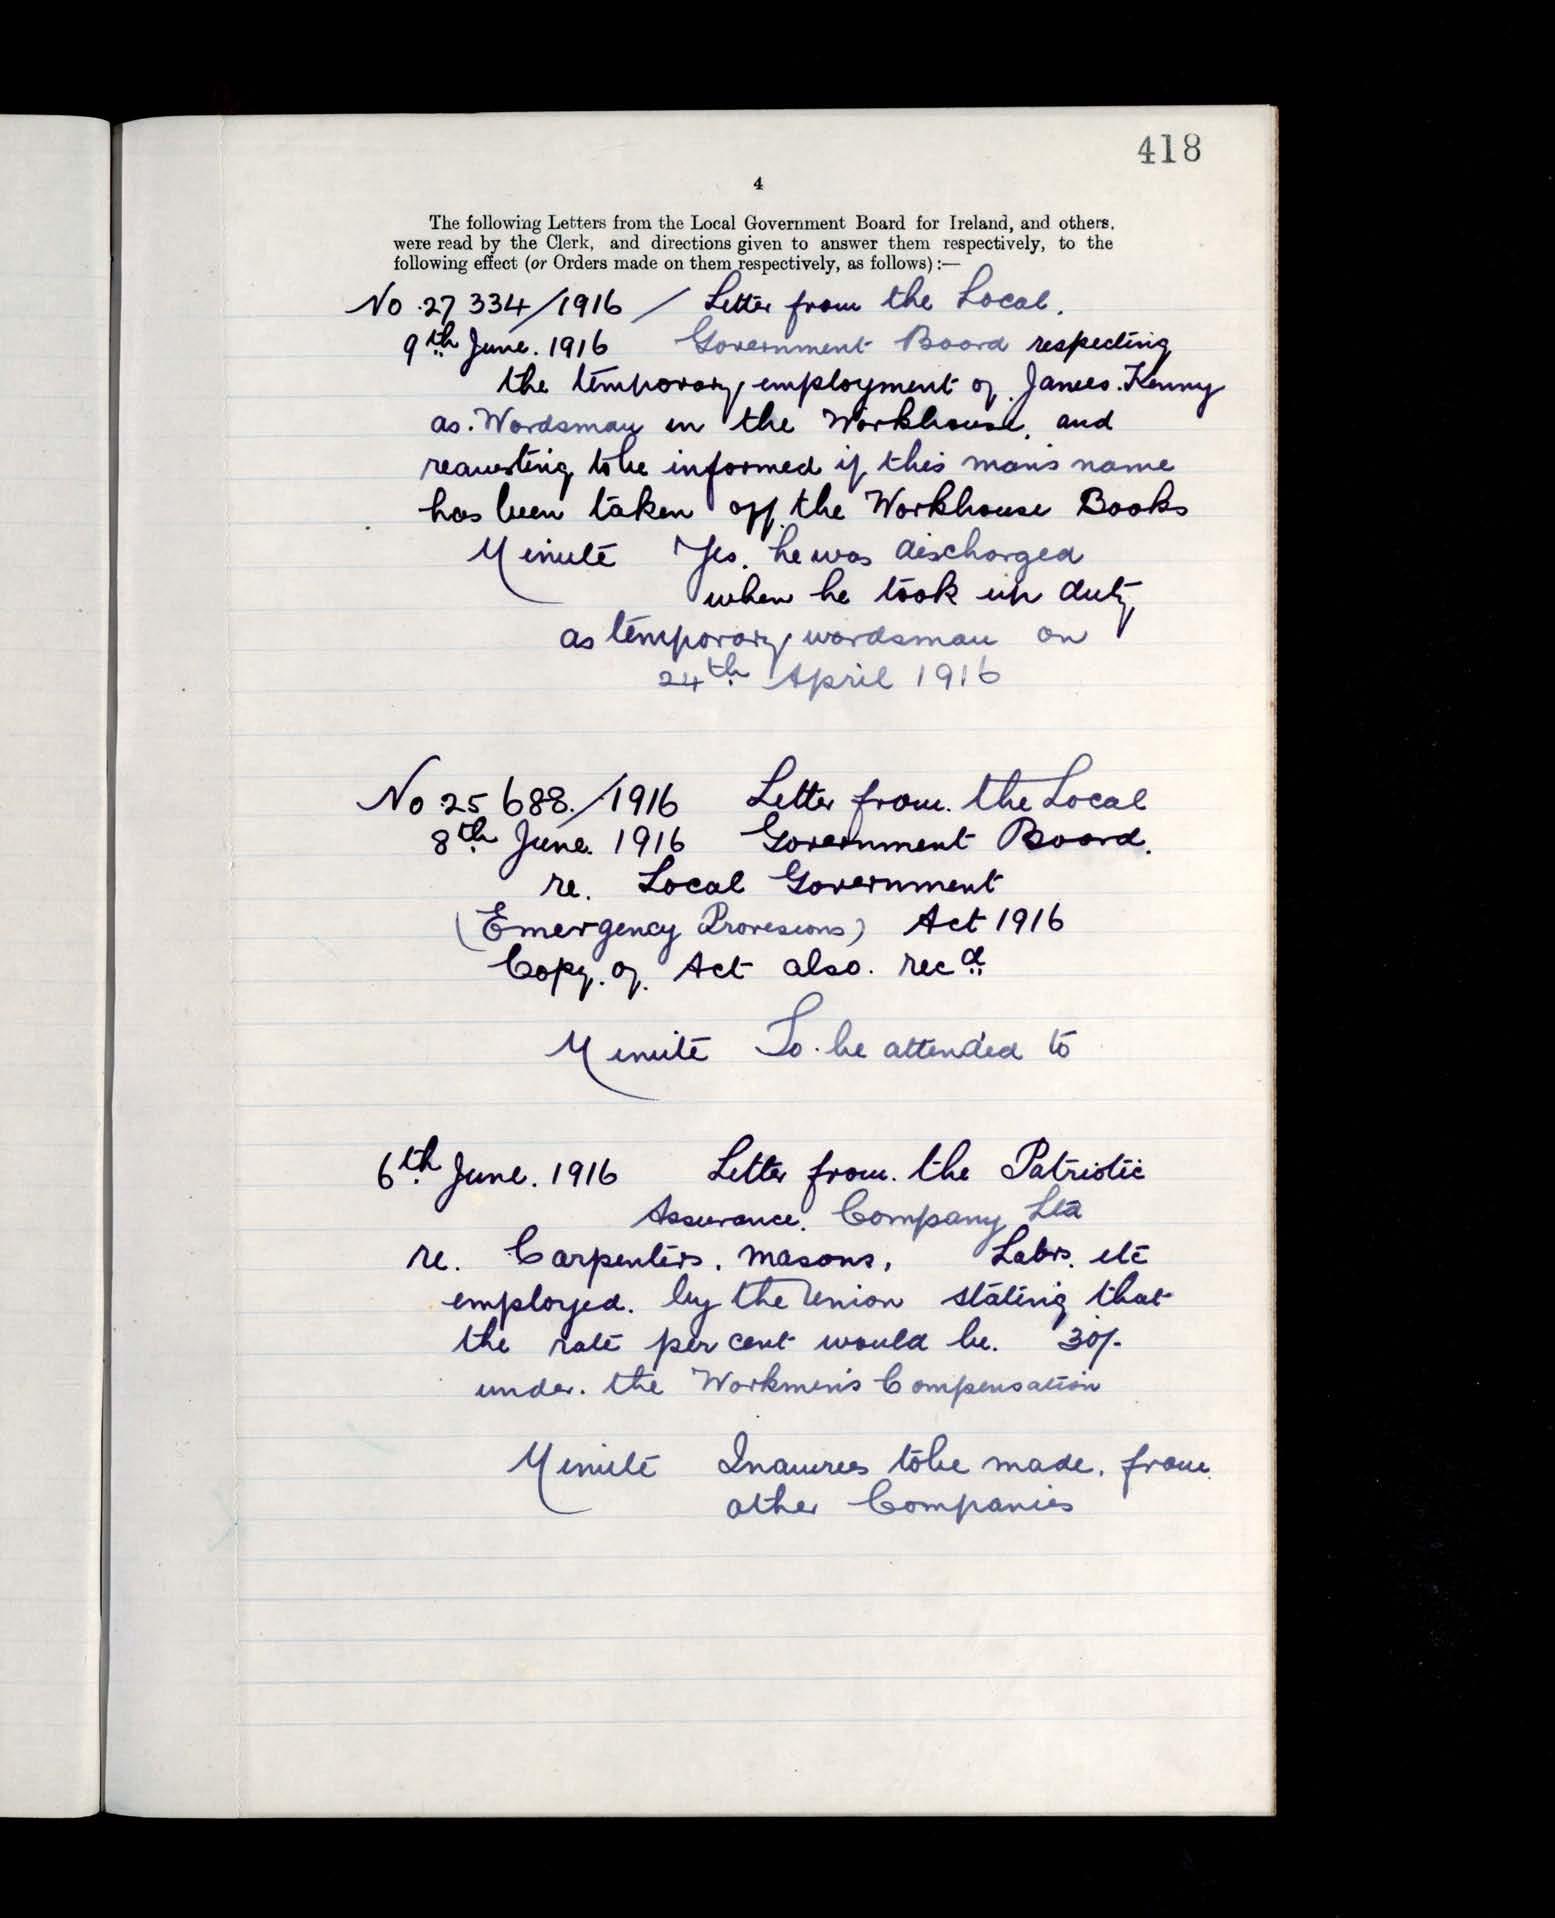 418
4
The following Letters from the Local Government Board for Ireland, and others,
were read by the Clerk, and directions given to answer them respectively, to the
following effect (or Orders made on them respectively, as follows):—
No. 27334/1916 / Letter from the Local.
9th June. 1916 Government Board respecting
the temporary employment of James. Kenny
as. Wardsman in the Workhouse, and
requesting to be informed if this man's name
has been taken off the Workhouse Books
Minute Yes. he was discharged
when he took up duty
as temporary wardsman on
24th April 1916
No. 25688./1916 Letter from. the Local
8th June. 1916 Government Board.
re. Local Government
(Emergency Provisions) Act 1916
Copy. of. Act also. recd
Minute To. be attended to
6th June. 1916 Letter from. the Patriotic
Assurance. Company Ltd
re. Carpenters, masons, Labrs. etc
employed. by the Union stating that
the rate per cent would be. 30/-
under. the Workmen's Compensation
Minute Inquiries to be made. from
other Companies